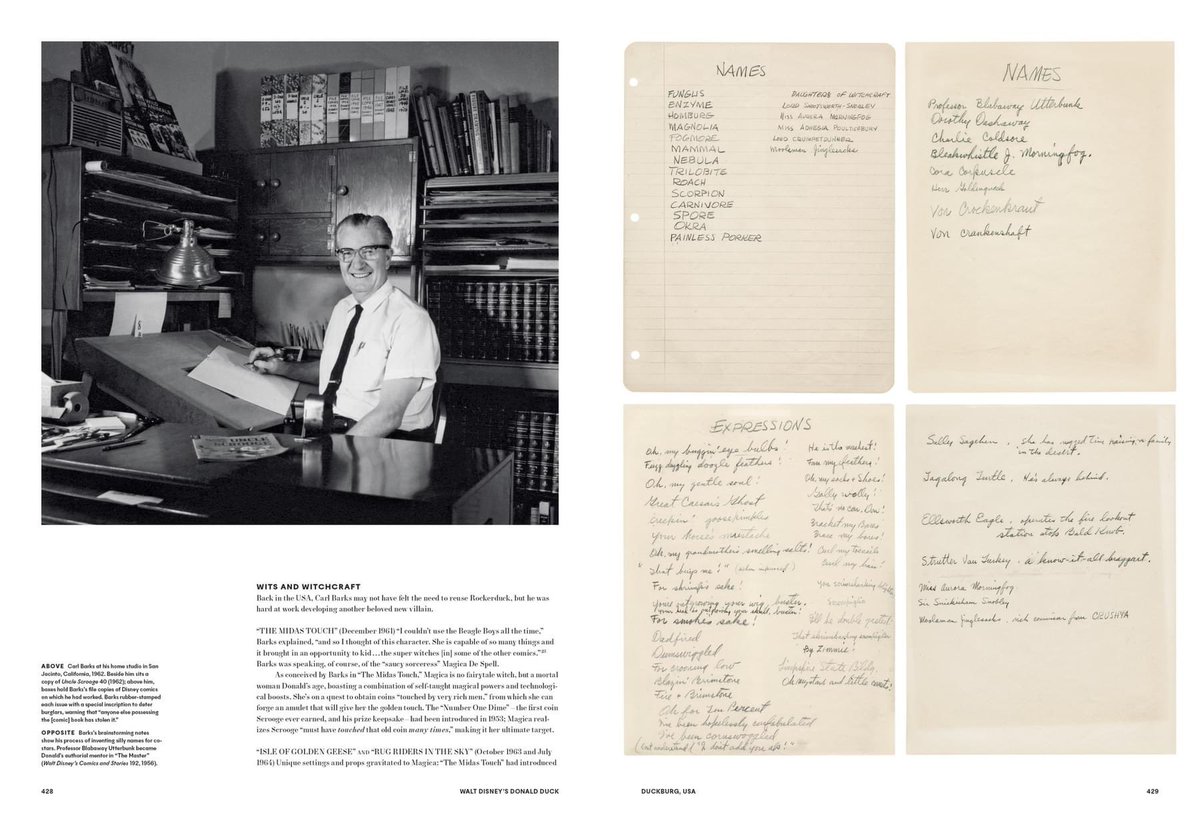 WITS AND WITCHCRAFT
Back in the USA, Carl Barks may not have felt the need to reuse Rockerduck, but he was
hard at work developing another beloved new villain.
“THE MIDAS TOUCH” (December 1961) “I couldn’t use the Beagle Boys all the time,”
Barks explained, “and so I thought of this character. She is capable of so many things and
it brought in an opportunity to kid…the super witches [in] some of the other comics.”
Barks was speaking, of course, of the “saucy sorceress” Magica De Spell.
As conceived by Barks in “The Midas Touch,” Magica is no fairytale witch, but a mortal
woman Donald’s age, boasting a combination of self-taught magical powers and technologi-
cal boosts. She’s on a quest to obtain coins “touched by very rich men,” from which she can
forge an amulet that will give her the golden touch. The “Number One Dime”—the first coin
Scrooge ever earned, and his prize keepsake—had been introduced in 1953; Magica real-
izes Scrooge “must have touched that old coin many times,” making it her ultimate target.
“ISLE OF GOLDEN GEESE” AND “RUG RIDERS IN THE SKY” (October 1963 and July
1964) Unique settings and props gravitated to Magica: “The Midas Touch” had introduced
ABOVE Carl Barks at his home studio in San
Jacinto, California, 1962. Beside him sits a
copy of Uncle Scrooge 40 (1962); above him,
boxes hold Barks’s file copies of Disney comics
on which he had worked. Barks rubber-stamped
each issue with a special inscription to deter
burglars, warning that “anyone else possessing
the [comic] book has stolen it.”
OPPOSITE Barks’s brainstorming notes
show his process of inventing silly names for co-
stars. Professor Blabaway Utterbunk became
Donald’s authorial mentor in “The Master”
(Walt Disney’s Comics and Stories 192, 1956).
428
WALT DISNEY’S DONALD DUCK
UNCLE
SCROOGE
NAMES
FUNGUS
ENZYME
HOMBURG
MAGNOLIA
FOGMORE
MAMMAL
NEBULA
TRILOBITE
ROACH
SCORPION
CARNIVORE
SPORE
OKRA
PAINLESS PORKER
DAUGHTERS OF WITCHCRAFT
LORD SNOOTWORTH-SNOBLEY
MISS AURORA MORNINGFOG
MISS ADHESIA POULTICEBURY
LORD CRUMPETDUNKER
Mooleman Jinglesocks
NAMES
Professor Blabaway Utterbunk
Dorothy Dashaway
Charlie Coldsore
Bleakwhistle J. Morningfog.
Cora Corpuscle
Herr
Von Crockenkraut
Von Crankenshaft
EXPRESSIONS
Oh, my buggin' eye bulbs!
Fuzz duggling doozle feathers!
Oh, my gentle soul!
Great Caesar's Ghost
Creepin' goosepimples
Your horse's mustache
Oh, my grandmother's smelling salts!
"That burps me!" (when annoyed)
For shrimp's sake!
You're outgrowing your wig, buster.
For smokes sake!
Dadfired
Dumswiggled
For crooning low
Blazin' Brimstone
Fire & Brimstone
Oh for Ten Percent
I've been hopelessly confabulated
I've been cornswoggled
(cant understand) "It don't add your abs!"
He is the waskest!
Fan my feathers!
Oh, my socks & Shoes!
Golly wolly!
That's no can, Don!
Bracket my Bones
Brace my bones!
Curl my toenails
Curl my hair!
I'll be double
That
By Zimmie!
Empire State Bldg.
Oh my stars and little comets!
Sally Sagehen, she has rugged time raising a family
in the desert.
Tagalong Turtle, He's always behind.
Ellsworth Eagle, operates the fire lookout
station atop Bald Knob.
Strutter Van Turkey, a know-it-all braggart.
Miss Aurora Morningfog
Sir Snickersham Snobley
Mooleman jinglesocks, rich from CRUSHYA
DUCKBURG, USA
429